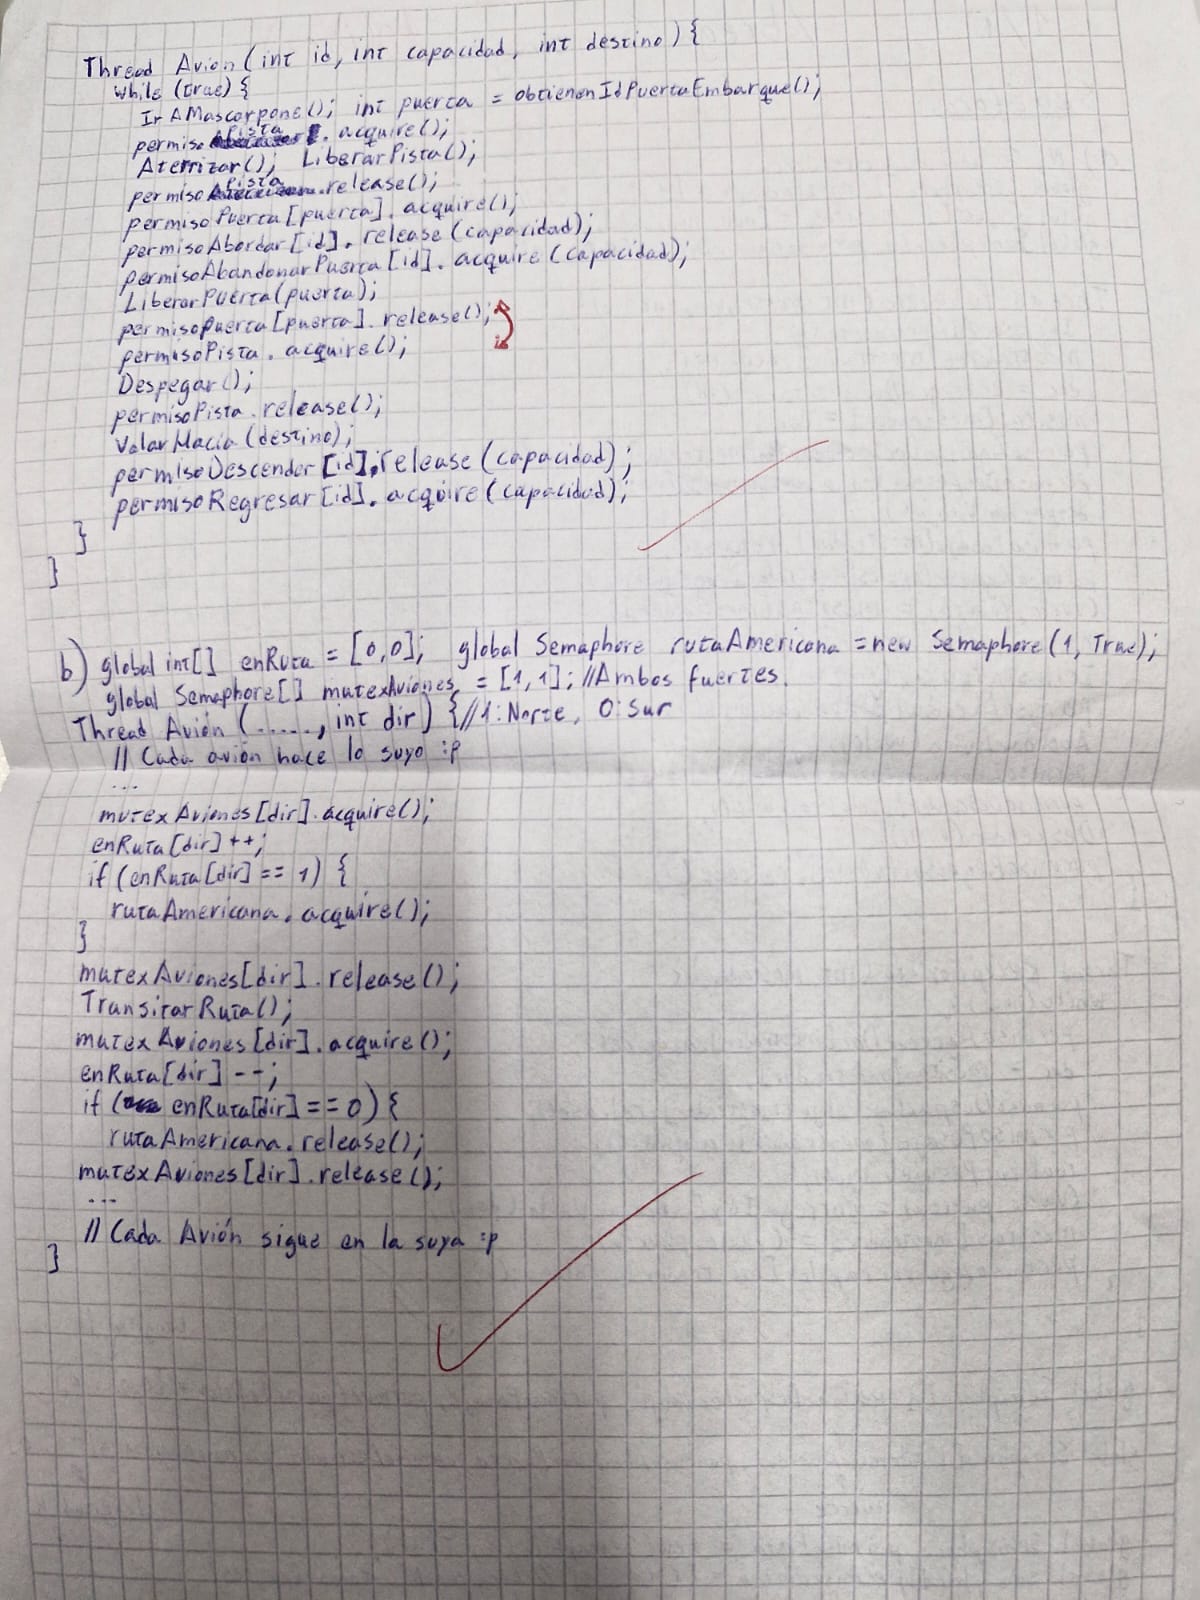 Thread Avion (int id, int capacidad, int destino) {
while (true) {
IrAMascorpone(); int puerta = obtienenIdPuertaEmbarque();
permisoPista.acquire();
Aterrizar(); LiberarPista();
permisoPista.release();
permisoPuerta[puerta].acquire();
permisoAbordar[id].release(capacidad);
permisoAbandonarPuerta[id].acquire(capacidad);
LiberarPuerta(puerta);
permisoPuerta[puerta].release();
permisoPista.acquire();
Despegar();
permisoPista.release();
VolarHacia(destino);
permisoDescender[id].release(capacidad);
permisoRegresar[id].acquire(capacidad);
}
}
b) global int[] enRuta = [0,0]; global Semaphore rutaAmericana = new Semaphore(1, True);
global Semaphore[] mutexAviones = [1,1]; //Ambos fuertes.
Thread Avión (....., int dir) { //1: Norte, 0: Sur
// Cada avión hace lo suyo :p
...
mutexAviones[dir].acquire();
enRuta[dir]++;
if (enRuta[dir] == 1) {
rutaAmericana.acquire();
}
mutexAviones[dir].release();
TransitarRuta();
mutexAviones[dir].acquire();
enRuta[dir]--;
if (enRuta[dir] == 0) {
rutaAmericana.release();
mutexAviones[dir].release();
...
// Cada Avión sigue en la suya :p
}